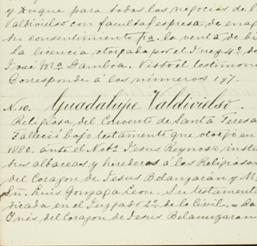 y Duque para todos los negocios de l
Valdivielso con facultad espresa de enag
su consentimiento pa. la venta de bi
la licencia otorgada por el Juez 4o. de
José Ma. Gamboa. Visto el testimon
Corresponde á los números 187
No. 10. Guadalupe Valdivielso.
Religiosa del Convento de Santa Teresa
Falleció bajo testamento que otorgó en
1880. ante el Noto. Jesus Reynoso, instu
tres albaceas y herederas á las Religiosas
del Corazon de Jesus Belaunzarán y M
Srñ. Luis Gonzaga Leon. Su testamento
dicada en el Juzgado 2o. de lo Civil. = La
Onis del Corazon de Jesus Belaunzaran